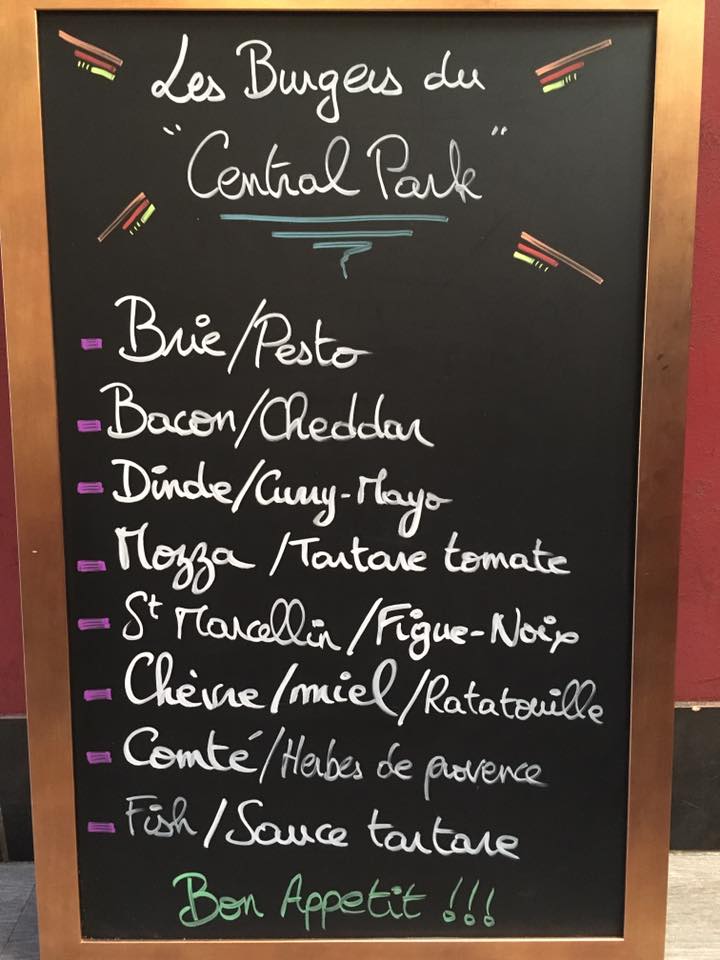 Les Burgers du
"Central Park"
- Brie/Pesto
- Bacon/Cheddar
- Dinde/Curry-Mayo
- Mozza /Tartare tomate
- St Marcellin/Figue-Noix
- Chèvre/miel/Ratatouille
- Comté/Herbes de provence
- Fish/Sauce tartare
Bon Appetit !!!